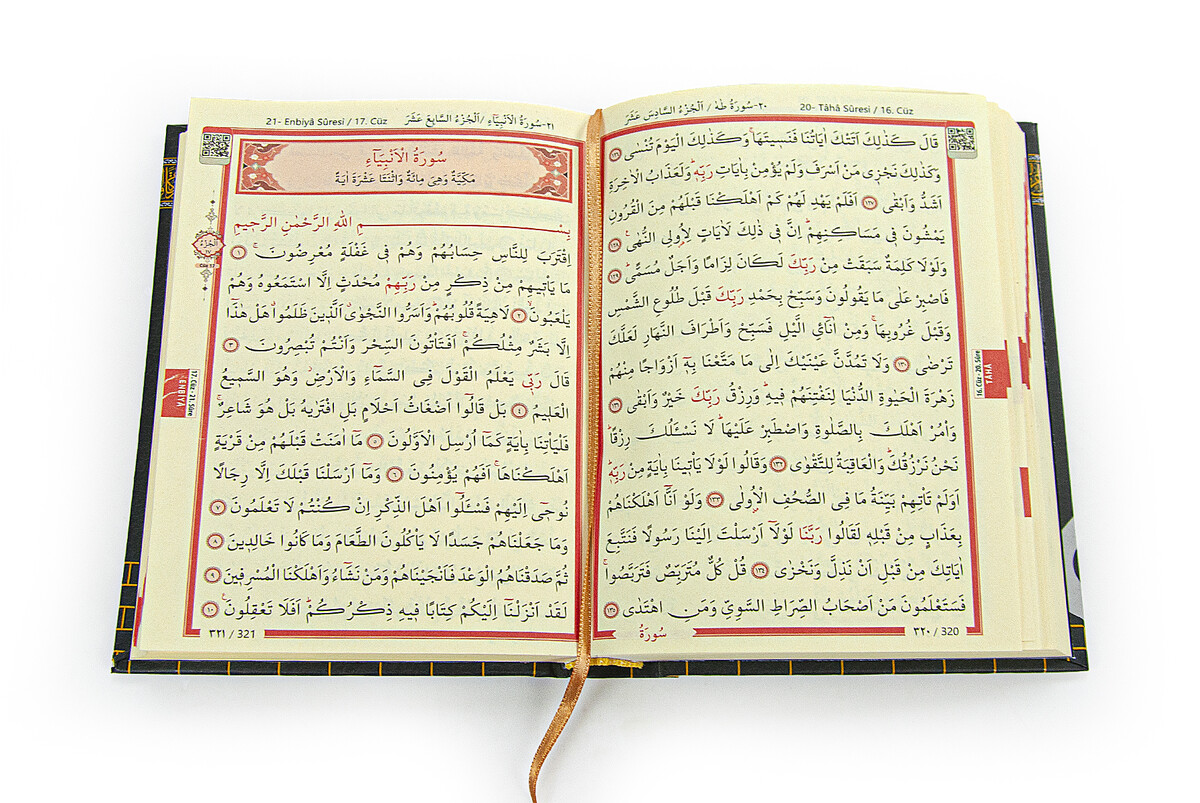 ٢٠-سُورَةُ طٰهٰ / اَلْجُزْءُ السَّادِسَ عَشَرَ 20- Tâhâ Sûresi / 16. Cüz
قَالَ كَذٰلِكَ اَتَتْكَ اٰيَاتُنَا فَنَسٖيتَهَاۚ وَكَذٰلِكَ الْيَوْمَ تُنْسٰى ١٢٦
وَكَذٰلِكَ نَجْزٖى مَنْ اَسْرَفَ وَلَمْ يُؤْمِنْ بِاٰيَاتِ رَبِّهٖۜ وَلَعَذَابُ الْاٰخِرَةِ
اَشَدُّ وَاَبْقٰى ١٢٧ اَفَلَمْ يَهْدِ لَهُمْ كَمْ اَهْلَكْنَا قَبْلَهُمْ مِنَ الْقُرُونِ
يَمْشُونَ فٖى مَسَاكِنِهِمْۜ اِنَّ فٖى ذٰلِكَ لَاٰيَاتٍ لِاُولِى النُّهٰىۚ ١٢٨
وَلَوْلَا كَلِمَةٌ سَبَقَتْ مِنْ رَبِّكَ لَكَانَ لِزَامًا وَاَجَلٌ مُسَمًّىۜ ١٢٩
فَاصْبِرْ عَلٰى مَا يَقُولُونَ وَسَبِّحْ بِحَمْدِ رَبِّكَ قَبْلَ طُلُوعِ الشَّمْسِ
وَقَبْلَ غُرُوبِهَاۚ وَمِنْ اٰنَٓائِ الَّيْلِ فَسَبِّحْ وَاَطْرَافَ النَّهَارِ لَعَلَّكَ
تَرْضٰى ١٣٠ وَلَا تَمُدَّنَّ عَيْنَيْكَ اِلٰى مَا مَتَّعْنَا بِهٖٓ اَزْوَاجًا مِنْهُمْ
زَهْرَةَ الْحَيٰوةِ الدُّنْيَا لِنَفْتِنَهُمْ فٖيهِۜ وَرِزْقُ رَبِّكَ خَيْرٌ وَاَبْقٰى ١٣١
وَأْمُرْ اَهْلَكَ بِالصَّلٰوةِ وَاصْطَبِرْ عَلَيْهَاۜ لَا نَسْـَٔلُكَ رِزْقًاۜ
نَحْنُ نَرْزُقُكَۜ وَالْعَاقِبَةُ لِلتَّقْوٰى ١٣٢ وَقَالُوا لَوْلَا يَأْتٖينَا بِاٰيَةٍ مِنْ رَبِّهٖۜ
اَوَلَمْ تَأْتِهِمْ بَيِّنَةُ مَا فِى الصُّحُفِ الْاُولٰى ١٣٣ وَلَوْ اَنَّٓا اَهْلَكْنَاهُمْ
بِعَذَابٍ مِنْ قَبْلِهٖ لَقَالُوا رَبَّنَا لَوْلَٓا اَرْسَلْتَ اِلَيْنَا رَسُولًا فَنَتَّبِعَ
اٰيَاتِكَ مِنْ قَبْلِ اَنْ نَذِلَّ وَنَخْزٰى ١٣٤ قُلْ كُلٌّ مُتَرَبِّصٌ فَتَرَبَّصُواۚ
فَسَتَعْلَمُونَ مَنْ اَصْحَابُ الصِّرَاطِ السَّوِىِّ وَمَنِ اهْتَدٰى ١٣٥
سُورَةُ
٣٢٠ / 320
16. Cüz - 20. Sûre
TÂHÂ
21- Enbiyâ Sûresi / 17. Cüz ٢١-سُورَةُ الْاَنْبِيَٓاءِ / اَلْجُزْءُ السَّابِعَ عَشَرَ
سُورَةُ الْاَنْبِيَٓاءِ
مَكِّيَّةٌ وَهِىَ مِائَةٌ وَاثْنَتَا عَشْرَةَ اٰيَةً
بِسْمِ اللّٰهِ الرَّحْمٰنِ الرَّحٖيمِ
اِقْتَرَبَ لِلنَّاسِ حِسَابُهُمْ وَهُمْ فٖى غَفْلَةٍ مُعْرِضُونَۚ ١
مَا يَأْتٖيهِمْ مِنْ ذِكْرٍ مِنْ رَبِّهِمْ مُحْدَثٍ اِلَّا اسْتَمَعُوهُ وَهُمْ
يَلْعَبُونَۙ ٢ لَاهِيَةً قُلُوبُهُمْۜ وَاَسَرُّوا النَّجْوٰىۗ اَلَّذٖينَ ظَلَمُواۗ هَلْ هٰذَٓا
اِلَّا بَشَرٌ مِثْلُكُمْۚ اَفَتَأْتُونَ السِّحْرَ وَاَنْتُمْ تُبْصِرُونَ ٣
قَالَ رَبّٖى يَعْلَمُ الْقَوْلَ فِى السَّمَٓاءِ وَالْاَرْضِۘ وَهُوَ السَّمٖيعُ
الْعَلٖيمُ ٤ بَلْ قَالُٓوا اَضْغَاثُ اَحْلَامٍ بَلِ افْتَرٰيهُ بَلْ هُوَ شَاعِرٌۚ
فَلْيَأْتِنَا بِاٰيَةٍ كَمَٓا اُرْسِلَ الْاَوَّلُونَ ٥ مَٓا اٰمَنَتْ قَبْلَهُمْ مِنْ قَرْيَةٍ
اَهْلَكْنَاهَاۚ اَفَهُمْ يُؤْمِنُونَ ٦ وَمَٓا اَرْسَلْنَا قَبْلَكَ اِلَّا رِجَالًا
نُوحٖٓى اِلَيْهِمْ فَسْـَٔلُٓوا اَهْلَ الذِّكْرِ اِنْ كُنْتُمْ لَا تَعْلَمُونَ ٧
وَمَا جَعَلْنَاهُمْ جَسَدًا لَا يَأْكُلُونَ الطَّعَامَ وَمَا كَانُوا خَالِدٖينَ ٨
ثُمَّ صَدَقْنَاهُمُ الْوَعْدَ فَاَنْجَيْنَاهُمْ وَمَنْ نَشَٓاءُ وَاَهْلَكْنَا الْمُسْرِفٖينَ ٩
لَقَدْ اَنْزَلْنَٓا اِلَيْكُمْ كِتَابًا فٖيهِ ذِكْرُكُمْۜ اَفَلَا تَعْقِلُونَ۟ ١٠
٣٢١ / 321
اَلْجُزْءُ
١٧
Cüz 17
17. Cüz - 21. Sûre
ENBİYÂ